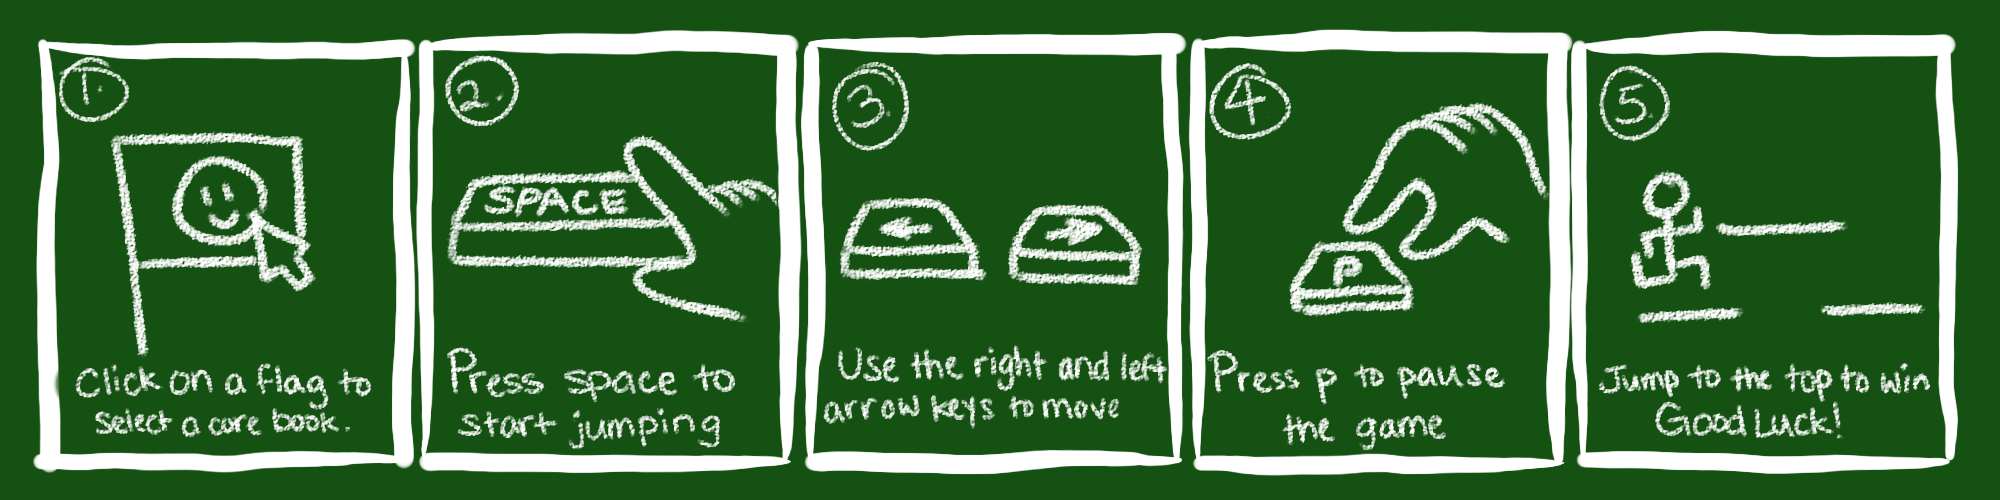 1.
Click on a flag to
select a core book.
2.
SPACE
Press space to
start jumping
3.
Use the right and left
arrow keys to move
4
P
Press p to pause
the game
5.
Jump to the top to win
Good Luck!